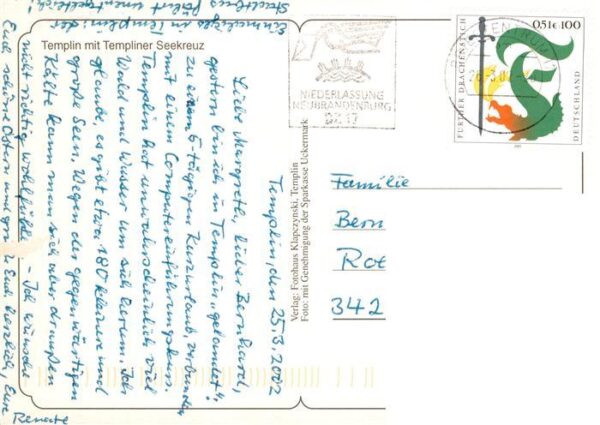 Templin mit Templiner Seekreuz
Templin, den 25.3.2002
Liebe Margreth, lieber Bernhard,
gestern bin ich in Templin „gelandet“
zu einem 6-tägigen Kurzurlaub, verbunden
mit einem Computereinführungskurs.
Templin hat unwahrscheinlich viel
Wald und Wasser um sich herum. Ich
glaube, es gibt etwa 180 kleinere und
große Seen. Wegen der gegenwärtigen
Kälte kann man sich aber draußen
nicht richtig wohlfühlen. - Ich wünsche
Euch schöne Ostern und grüße Euch herzlich, Eure
Renate
Einmaliges in Templin: der
Verlag: Fotohaus Klapczynski, Templin
Foto: mit Genehmigung der Sparkasse Uckermark
NIEDERLASSUNG
NEUBRANDENBURG
BZ 17
FURTHER DRACHENSTICH
0,51€ 100
DEUTSCHLAND
Familie
Bern
Rot
342